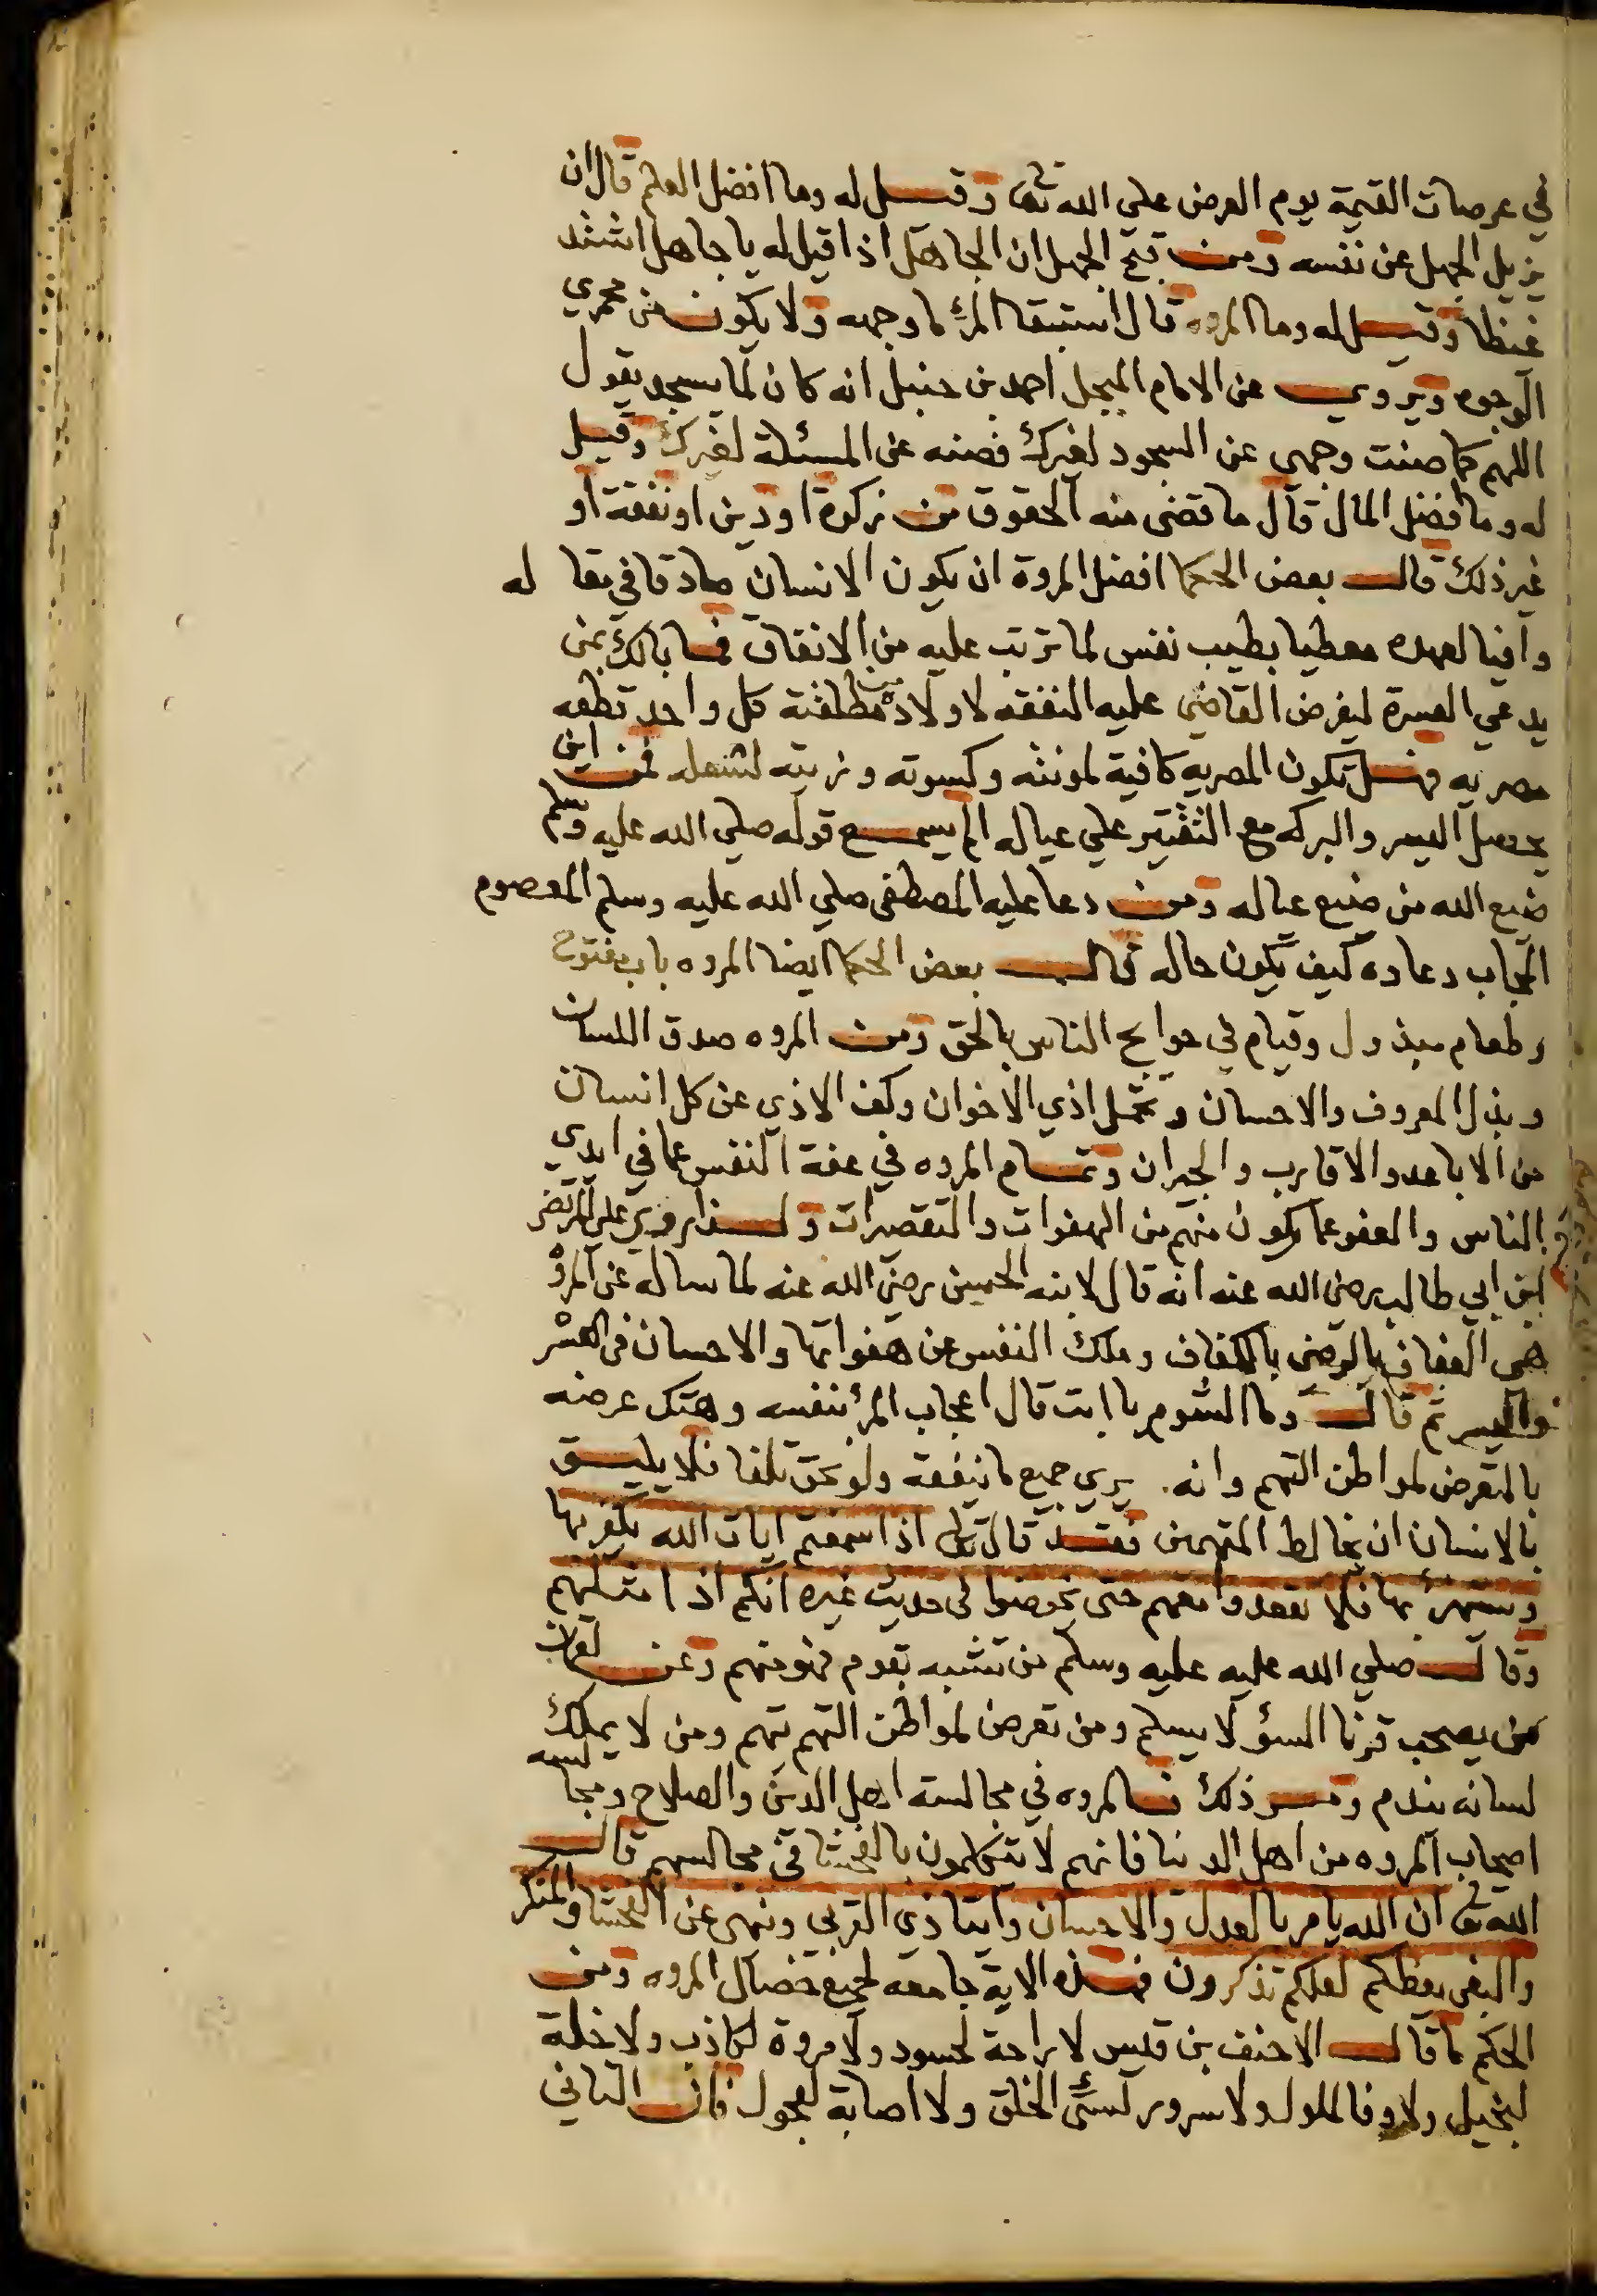 في عرصات القيمة يوم العرض علي الله تعا وقيل له وما افضل العلم قال ان
يزيل الجهل عن نفسه ومن قبح الجهل ان الجاهل اذا قيل له يا جاهل اشتد
غيظا وقيل له وما المروه قال استبقا المرء ما وجهه ولا يكون من
الوجوه ويروي عن الامام المبجل احمد بن حنبل انه كان لما يسجد يقول
اللهم كما صنت وجهي عن السجود لغيرك فصنه عن المسئلة لغيرك وقيل
له وما افضل المال قال ما قضى منه الحقوق من زكوة او دين او نفقة او
غير ذلك قال بعض الحكما افضل المروة ان يكون الانسان صادقا في مقاله
وافيا لعهده معطيا بطيب نفس لما ترتب عليه من الانفاق فما بالك بمن
يدعي العسرة ليفرض القاضي عليه النفقه لاولاده من مطلقته كل واحد قطعه
مصريه فهل تكون المصريه كافية لمونته وكسوته وزيته لشعله فمن اين
يحصل اليسر والبركه مع التقتير علي عياله الم يسمع قوله صلي الله عليه وسلم
ضيع الله من ضيع عياله ومن دعا عليه المصطفى صلي الله عليه وسلم المعصوم
المجاب دعاده كيف يكون حاله قال بعض الحكما ايضا المروه باب مفتوح
وطعام مبذول وقيام في حوايج الناس بالحق ومن المروه صدق اللسان
وبذل المعروف والاحسان وتحمل اذي الاخوان وكف الاذي عن كل انسان
من الاباعد والاقارب والجيران وتمام المروه في عفة النفس عما في ايدي
الناس والعفو عما يكون منهم من الهفوات والتقصيرات ولذا روي علي المرتضى
ابن ابي طالب رضى الله عنه انه قال لابنه الحسين رضى الله عنه لما ساله عن المروة
هي العفاف بالرضى بالكفاف وملك النفس عن هفواتها والاحسان في العسر
واليسر ثم قال وما الشوم يا ابت قال اعجاب المرء بنفسه وهتك عرضه
بالتعرض لمواطن التهم وانه يري جميع ما ينفقه ولو بحق تلفا فلا يليق
بالانسان ان يخالط المتهمين فقد قال تعالى اذا سمعتم ايات الله يكفر بها
ويستهزء بها فلا تقعدوا معهم حتى يخوضوا في حديث غيره انكم اذا مثلهم
وقال صلي الله عليه عليه وسلم من تشبه بقوم فهو منهم وعن لقمان
من يصحب قرنا السؤ لا يسلم ومن تعرض لمواطن التهم تهم ومن لا يملك
لسانه يندم ومر ذلك فالمروه في مجالسة اهل الدين والصلاح ومجالسه
اصحاب المروه من اهل الدنيا فانهم لا يتكلمون بالفحشا في مجالسهم قال
الله تعا ان الله يامر بالعدل والاحسان وايتا ذي القربي وينهى عن الفحشا والمنكر
والبغى يعظكم لعلكم تذكرون فهذه الاية جامعه لجميع خصال المروه ومن
الحكم ما قال الاحنف بن قيس لا راحة لحسود ولا مروة لكاذب ولا خلة
لبخيل ولا وفا لملول ولا سرور لسيئ الخلق ولا اصابة لعجول فان التاني